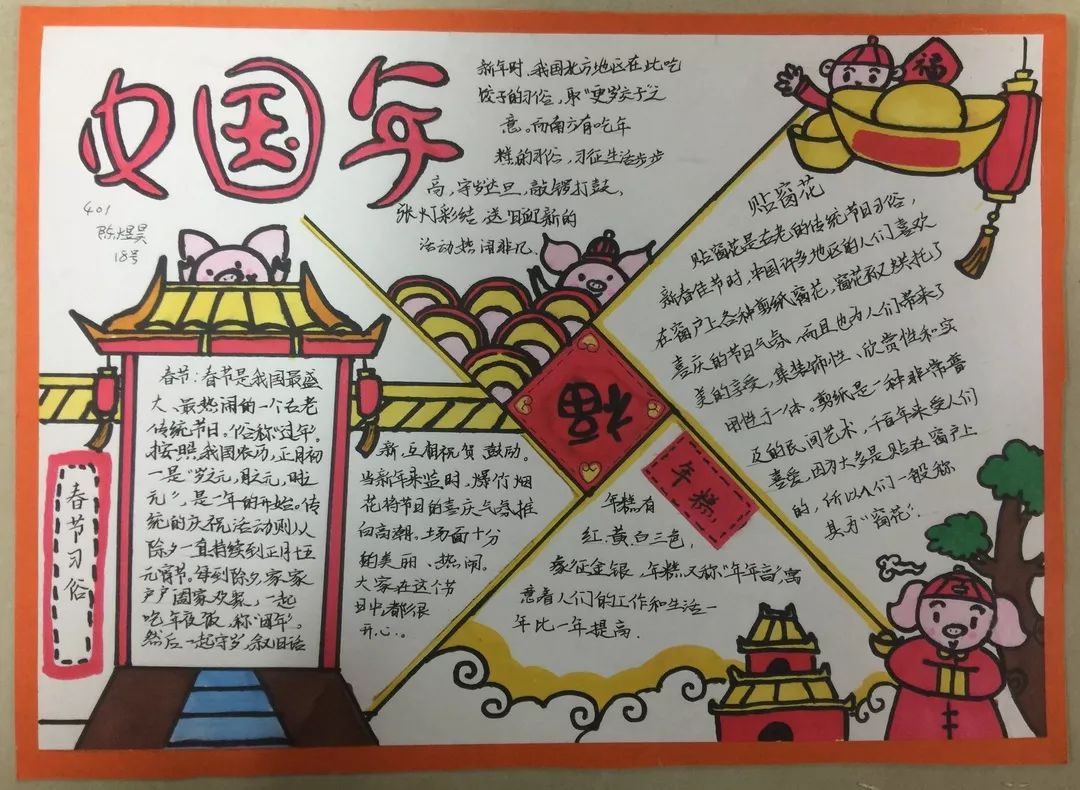 中国年
401
陈煜昊
18号
新年时,我国北方地区在此吃
饺子的习俗,取"更岁交子"之
意。而南方有吃年
糕的习俗,习征生活步步
高,守岁达旦,敲锣打鼓,
张灯彩结,送旧迎新的
活动热闹非凡.
福
春节习俗
春节:春节是我国最盛
大、最热闹的一个古老
传统节日。俗称"过年".
按照,我国农历,正月初
一是"岁元,月元,时
元",是一年的开始。传
统的庆祝活动则从
除夕一直持续到正月十五
元宵节。每到除夕,家家
户户阖家欢聚,一起
吃年夜饭,称"团年".
然后一起守岁,叙旧话
新,互相祝贺鼓励。
当新年来临时,爆竹烟
花将节日的喜庆气氛推
向高潮。场面十分
的美丽、热闹。
大家在这个节
日中,都很
开心。
福
年糕
年糕有
红、黄、白三色,
象征金银,年糕又称"年年高",寓
意着人们的工作和生活一
年比一年提高.
贴窗花
贴窗花是古老的传统节日习俗,
新春佳节时,中国许多地区的人们喜欢
在窗户上各种剪纸窗花,窗花不仅烘托了
喜庆的节日气氛,而且也为人们带来了
美的享受,集装饰性、欣赏性和实
用性于一体。剪纸是一种非常普
及的民间艺术,千百年来受人们
喜爱,因为大多是贴在窗户上
的,所以人们一般称
其为"窗花".